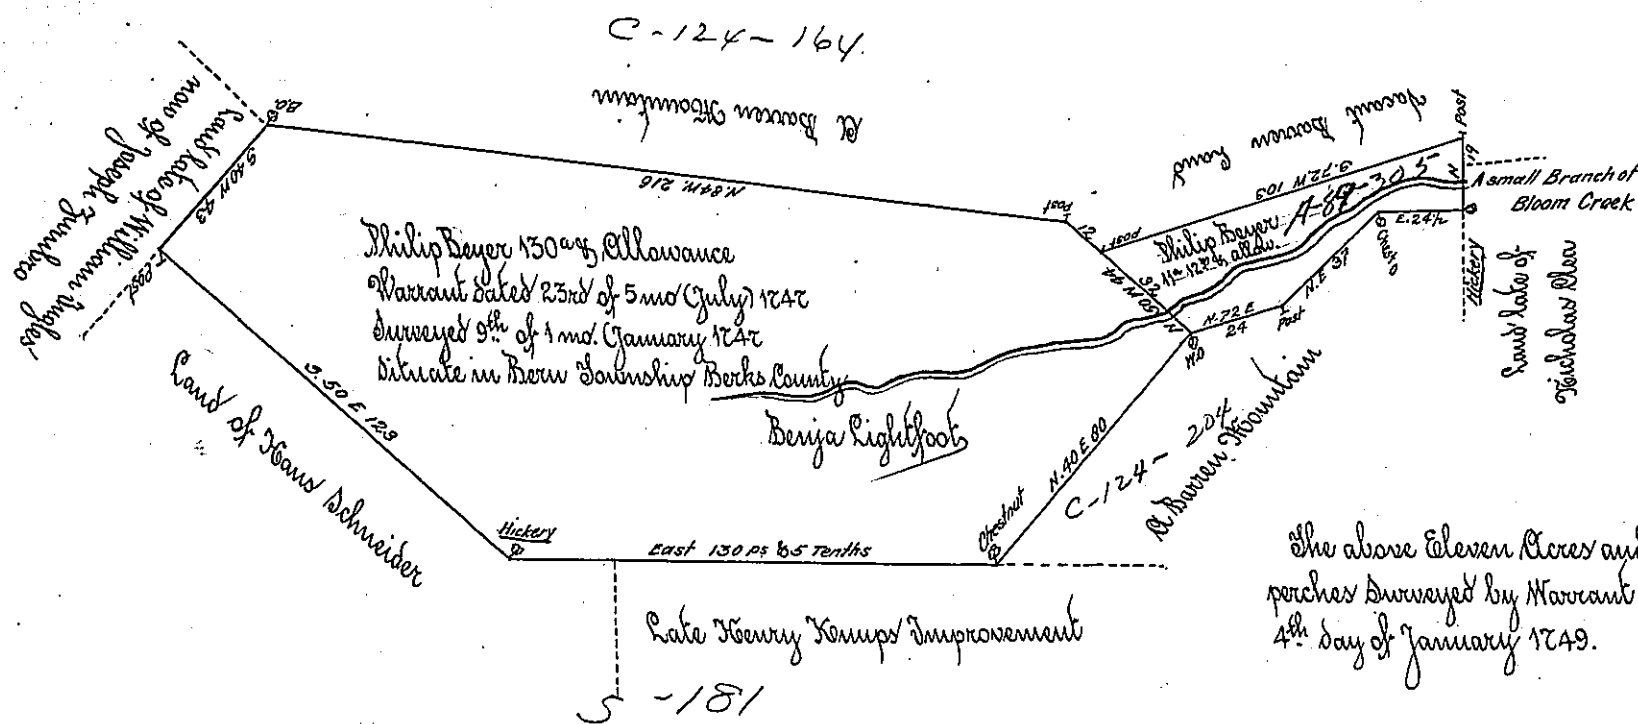 C-124-164.
A Barren Mountain
Vacant Barren Land
Land late of William Ingles
now of Joseph Zumbro
B.O.
S 40 W 43
Post
N. 84 W. 216
Post
12
Post
S. 72 W 103
Post
19
N
A small Branch of
Bloom Creek
Philip Beyer A-89-305
11a 12p & allow.
Philip Beyer 130a & Allowance
Warrant dated 23rd of 5 mo (July) 1747
Surveyed 9th of 1 mo. (January 1747
Situate in Bern Township Berks County
Benja Lightfoot
N 50 W 44
32
W.O
N. 72 E
24
Post
N.E 37
E. 24½
Hickery
Land late of
Nicholas
Land of Hans Schneider
S. 50 E 123
Hickery
East 130 ps & 5 Tenths
Chestnut
N. 40 E 80
C-124-204
A Barren Mountain
Late Henry Kenups Improvement
S-181
The above Eleven Acres and
perches Surveyed by Warrant
4th day of January 1749.